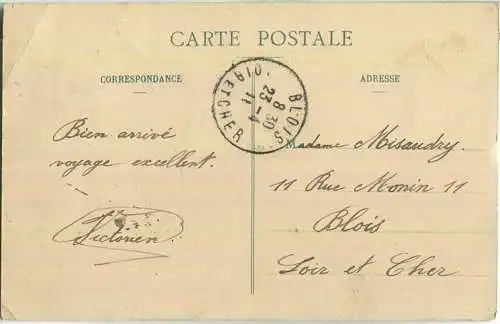 CARTE POSTALE
CORRESPONDANCE
ADRESSE
BLOIS
8 30
23 - 4
11
LOIR ET CHER
Bien arrivé
voyage excellent.
Victorien
Madame Misaudry.
11 Rue Monin 11
Blois
Loir et Cher